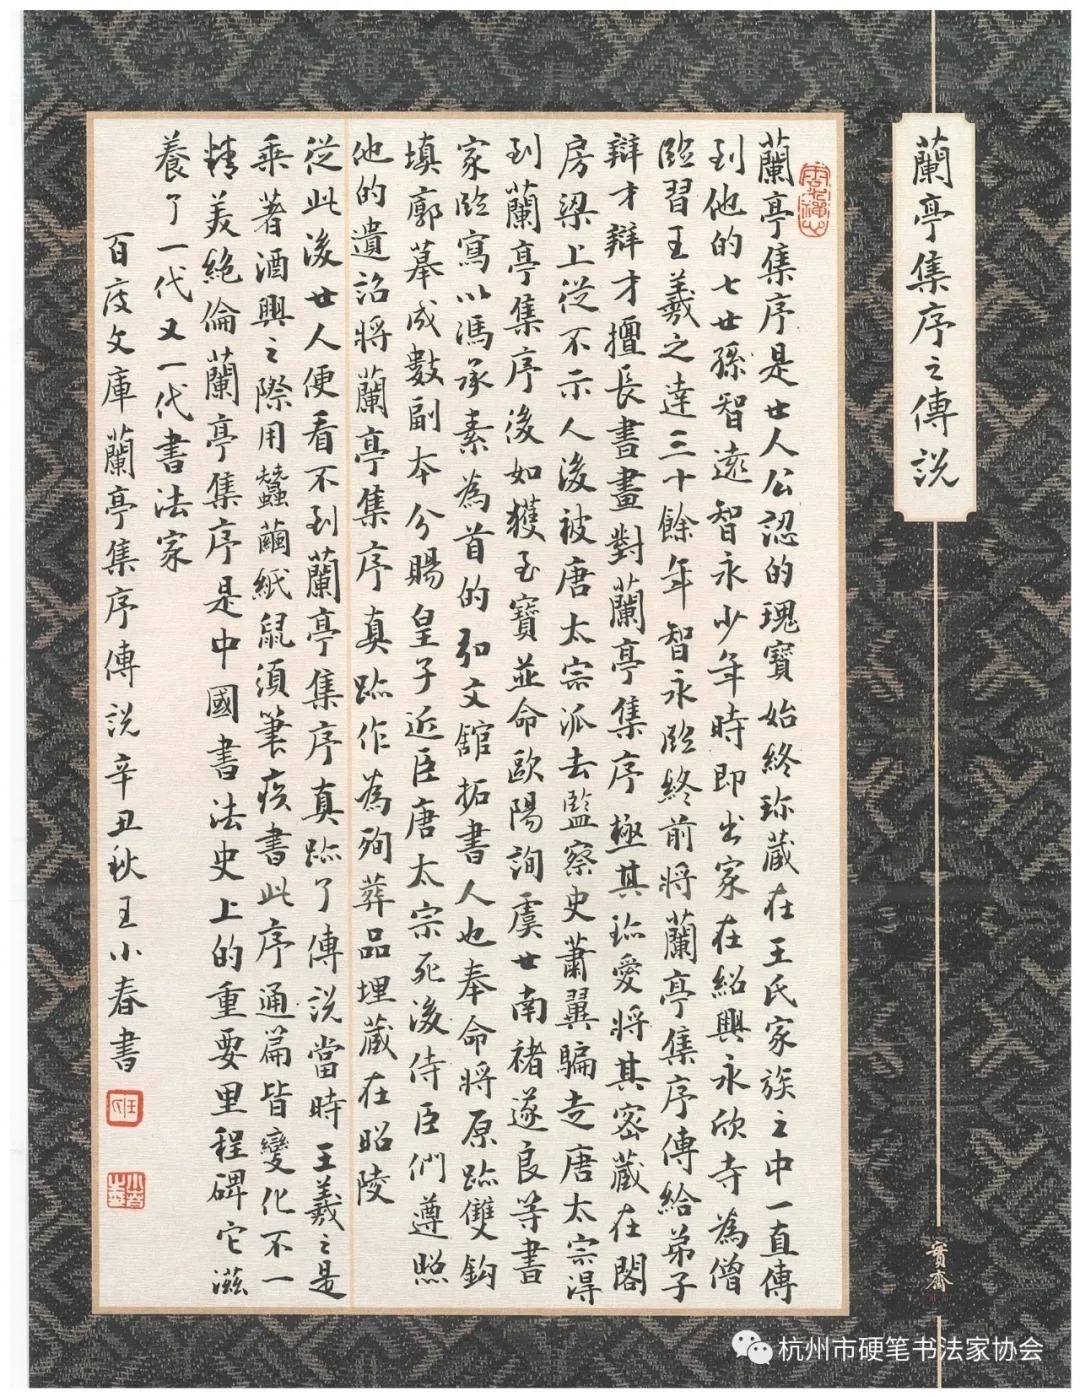 蘭亭集序之傳説
蘭亭集序是世人公認的瑰寶始終珎藏在王氏家族之中一直傳
到他的七世孫智遠智永少年時即出家在紹興永欣寺為僧
臨習王羲之達三十餘年智永臨終前將蘭亭集序傳給弟子
辯才辯才擅長書畫對蘭亭集序極其珎愛將其密藏在閣
房梁上從不示人後被唐太宗派去監察史蕭翼騙走唐太宗得
到蘭亭集序後如獲至寶並命歐陽詢虞世南褚遂良等書
家臨寫以馮承素為首的弘文館拓書人也奉命將原跡雙鈎
填廓摹成數副本分賜皇子近臣唐太宗死後侍臣們遵照
他的遺詔將蘭亭集序真跡作為殉葬品埋藏在昭陵
從此後世人便看不到蘭亭集序真跡了傳説當時王羲之是
乘著酒興之際用蠶繭紙鼠須筆疾書此序通篇皆變化不一
精美絶倫蘭亭集序是中國書法史上的重要里程碑它滋
養了一代又一代書法家
百度文庫蘭亭集序傳説辛丑秋王小春書
寳齋
杭州市硬笔书法家协会